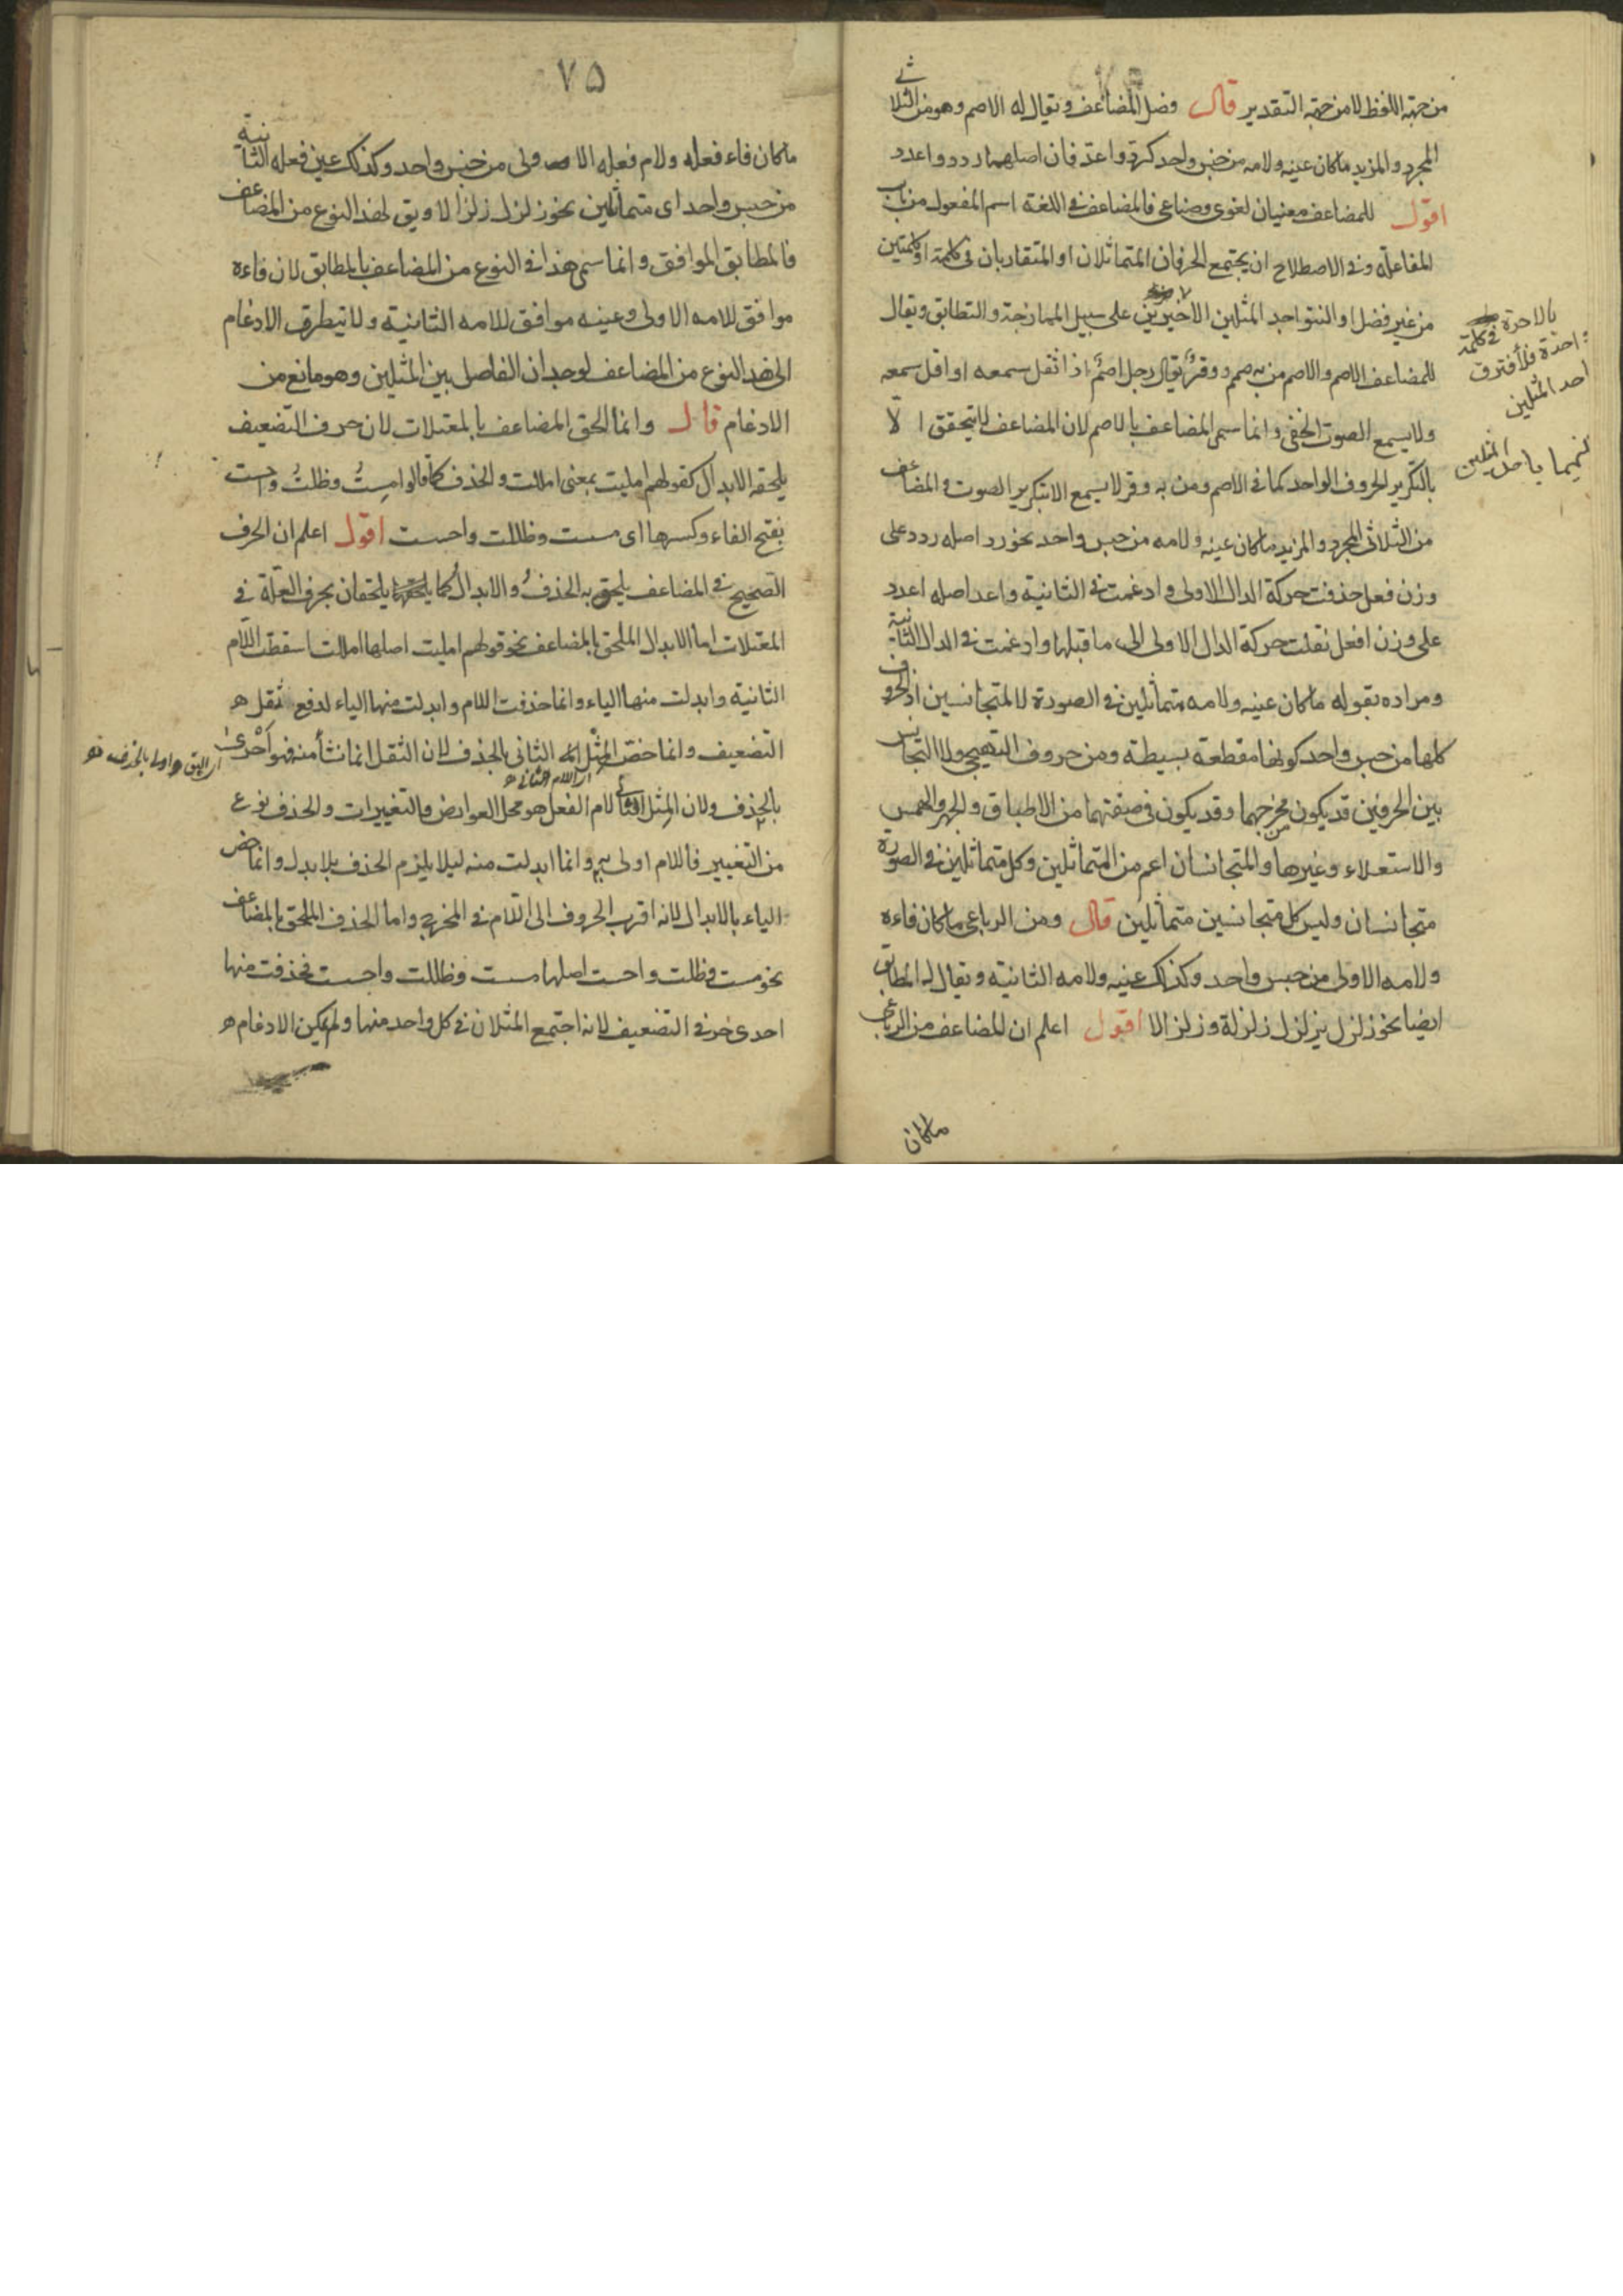 من جهة اللفظ لا من جهة التقدير قال فصل المضاعف ويقال له الاصم وهو من الثلاثى
المجرد والمزيد ما كان عينه ولامه من جنس واحد كردّ واعدّ فان اصلهما ردد واعدد
اقول للمضاعف معنيان لغوى وصناعى فالمضاعف فى اللغة اسم المفعول من باب
المفاعلة وفى الاصطلاح ان يجتمع الحرفان المتماثلان او المتقاربان فى كلمة او كلمتين
من غير فصل او التواجد المثلين الاخيرين على سبيل الممازجة والتطابق ويقال
للمضاعف الاصم والاصم من به صمم ووقر يقال رجل اصمّ اذا ثقل سمعه او اقل سمعه
ولا يسمع الصوت الخفى وانما سمى المضاعف بالاصم لان المضاعف لا يتحقق الّا
بالتكرير الحروف الواحد كما فى الاصم ومن به وقر لا يسمع الا بتكرير الصوت والمضاعف
من الثلاثى المجرد والمزيد ما كان عينه ولامه من جنس واحد نحو رد اصله ردد على
وزن فعل حذفت حركة الدال الاولى وادغمت فى الثانية واعد اصله اعدد
على وزن افعل نقلت حركة الدال الاولى الى ما قبلها وادغمت فى الدال الثانية
ومراده بقوله ما كان عينه ولامه متماثلين فى الصورة لا المتجانسين اذ الحروف
كلها من جنس واحد كونها مقطعة بسيطة ومن حروف التهجى ولا التجانس
بين الحرفين قد يكون مخرجهما وقد يكون فى صفتهما من الاطباق والجهر والهمس
والاستعلاء وغيرها والمتجانسان اعم من المتماثلين وكل متماثلين فى الصورة
متجانسان وليس كل متجانسين متماثلين قال ومن الرباعى ما كان فاءه
ولامه الاولى من جنس واحد وكذلك عينه ولامه الثانية ويقال له المطابق
ايضا نحو زلزل يزلزل زلزلة وزلزالا اقول اعلم ان المضاعف من الرباعى
ما كان
بالاخرة فى كلمة
احدة فلا فترق
احد المثلين
باحد المثلين
٧٥
ما كان فاء فعله ولام فعله الاولى من جنس واحد وكذلك عين فعله الثانية
من جنس واحد اى متماثلين نحو زلزل زلزالا ويق لهذا النوع من المضاعف
فالمطابق الموافق وانما سمى هذا فى النوع من المضاعف بالمطابق لان فاءه
موافق للامه الاولى وعينه موافق للامه الثانية ولا يتطرق الادغام
الى هذا النوع من المضاعف لوجدان الفاصل بين المثلين وهو مانع من
الادغام قال وانما الحق المضاعف بالمعتلات لان حرف التضعيف
يلحقه الابدال كقولهم امليت بمعنى امللت والحذف كما قالوا مست وظلت واحست
بفتح الفاء وكسرها اى مسست وظللت واحسست اقول اعلم ان الحرف
الصحيح فى المضاعف يلحق به الحذف والابدال كما يلحقان بحرف العلة فى
المعتلات اما الابدال الملحق بالمضاعف نحو قولهم امليت اصلها امللت اسقطت اللام
الثانية وابدلت منها الياء وانما حذفت اللام وابدلت منها الياء لدفع ثقل
التضعيف وانما خص المثل الثانى بالحذف لان الثقل انما نشأ منه فهو احرى
اى اليق واولى بالحذف
اى اللام الثانى
بالحذف ولان المثل الثانى لام الفعل هو محل العوارض والتغييرات والحذف نوع
من التغيير فاللام اولى به وانما ابدلت منه ليلا يلزم الحذف بلا بدل وانما خص
الياء بالابدال لانه اقرب الحروف الى اللام فى المخرج واما الحذف الملحق بالمضاعف
نحو مست وظلت واحست اصلها مسست وظللت واحسست فحذفت منها
احدى حرفى التضعيف لانه اجتمع المثلان فى كل واحد منها ولم يمكن الادغام